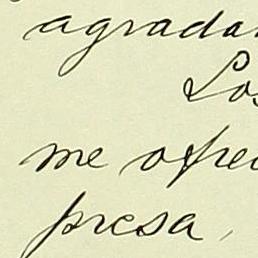 agradar
Los
me ofrec
presa,